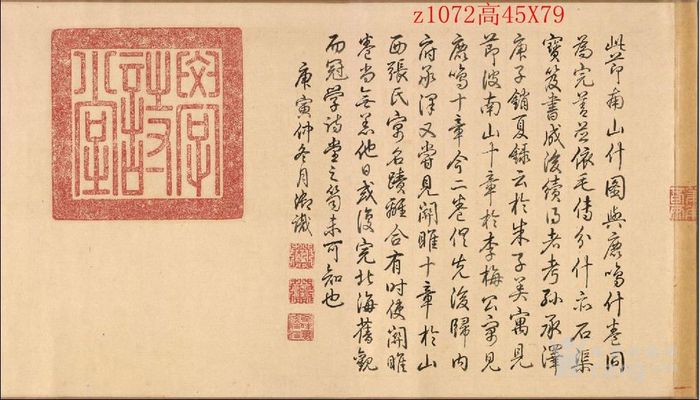 z1072高45X79
此節南山什圖與鹿鳴什卷同
為完善並依毛傳分什亦石渠
寶笈書成後續得者考孫承澤
庚子銷夏錄云於朱子美寓見
節彼南山十章於李梅公寓見
鹿鳴十章今二卷俱先後歸内
府承澤又嘗見關雎十章於山
西張氏寓名蹟離合有時使關雎
卷尚無恙他日或復完北海舊觀
而冠學詩堂之笥未可知也
庚寅仲冬月御識
學詩堂